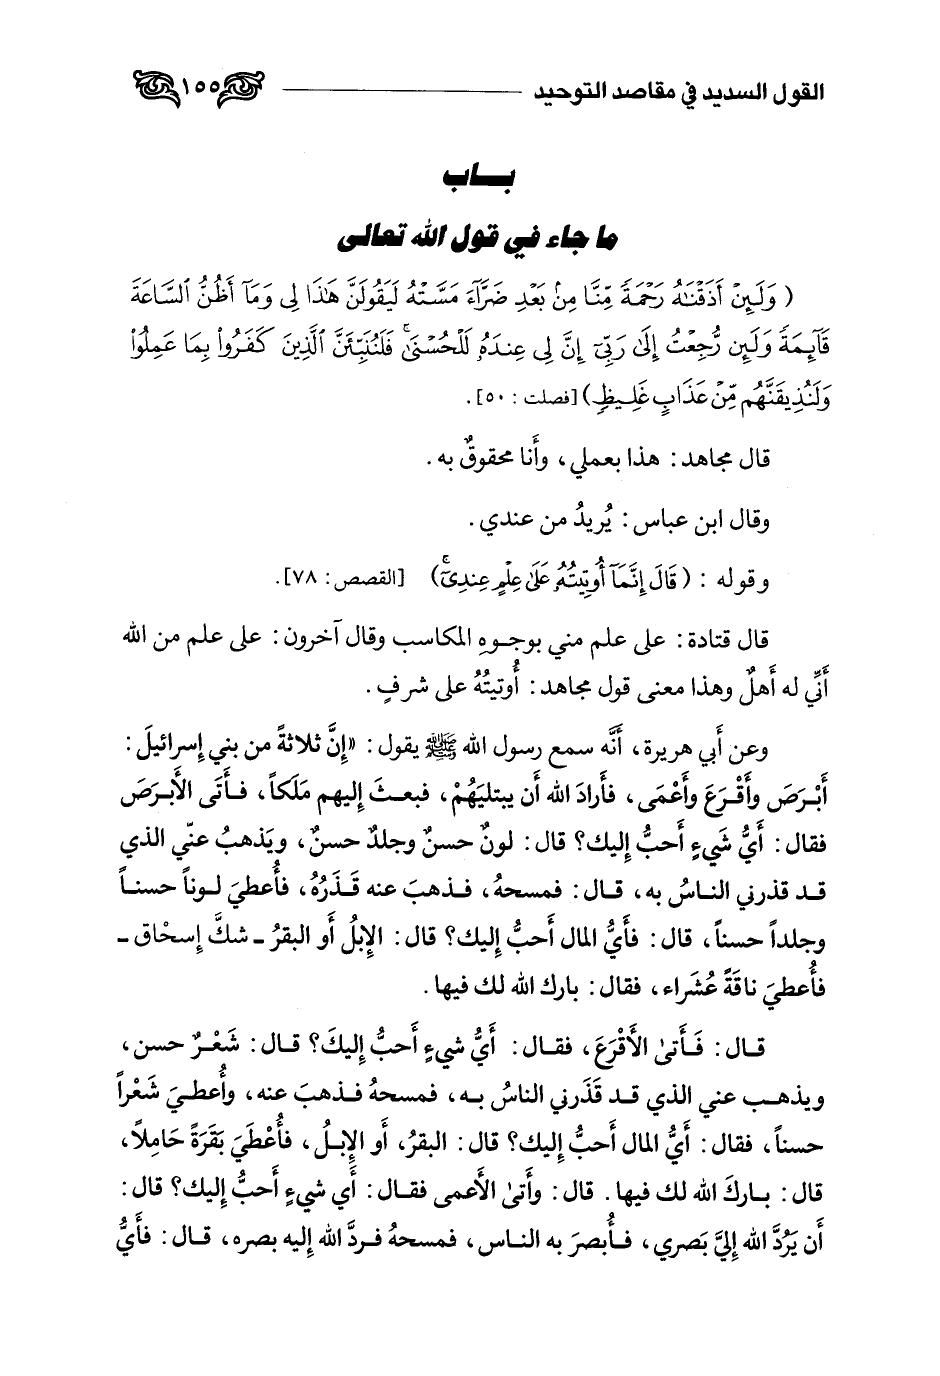 القول السديد في مقاصد التوحيد ١٥٥
بـــاب
ما جاء في قول الله تعالى
( وَلَئِنْ أَذَقْنَاهُ رَحْمَةً مِّنَّا مِنْ بَعْدِ ضَرَّآءَ مَسَّتْهُ لَيَقُولَنَّ هَٰذَا لِى وَمَآ أَظُنُّ ٱلسَّاعَةَ
قَآئِمَةً وَلَئِن رُّجِعْتُ إِلَىٰ رَبِّىٓ إِنَّ لِى عِندَهُۥ لَلْحُسْنَىٰ ۚ فَلَنُنَبِّئَنَّ ٱلَّذِينَ كَفَرُوا۟ بِمَا عَمِلُوا۟
وَلَنُذِيقَنَّهُم مِّنْ عَذَابٍ غَلِيظٍ ) [فصلت : ٥٠] .
قال مجاهد : هذا بعملي ، وأَنا محقوقٌ به .
وقال ابن عباس : يُريدُ من عندي .
وقوله : ( قَالَ إِنَّمَآ أُوتِيتُهُۥ عَلَىٰ عِلْمٍ عِندِىٓ ۚ ) [القصص : ٧٨] .
قال قتادة : على علم مني بوجـوهِ المكاسب وقال آخرون : على علم من الله
أَنِّي له أَهلٌ وهذا معنى قول مجاهد : أُوتيتُهُ على شرفٍ .
وعن أَبي هريرة ، أَنَّه سمع رسول الله ﷺ يقول : «إِنَّ ثلاثةً من بني إِسرائيلَ :
أَبْـرَصَ وأَقْـرَعَ وأَعْمَى ، فأَرادَ الله أَن يبتليَهُمْ ، فبعـثَ إِليهم مَلَكاً ، فـأَتَى الأَبـرَصَ
فقال : أَيُّ شَيءٍ أَحبُّ إِليك؟ قال : لونٌ حسنٌ وجلدٌ حسنٌ ، ويَذهبُ عنّي الذي
قـد قذرني النـاسُ به ، قـال : فمسحهُ ، فـذهبَ عنه قَـذَرُهُ ، فأُعطيَ لـوناً حسنـاً
وجلداً حسناً ، قال : فأَيُّ المال أَحبُّ إِليك؟ قال : الإِبلُ أَو البقرُ ـ شكَّ إِسحْاق ـ
فأُعطيَ ناقَةً عُشَراء ، فقال : بارك الله لك فيها .
قـال : فَـأَتىٰ الأَقْرَعَ ، فقـال : أَيُّ شيءٍ أَحبُّ إِليكَ؟ قـال : شَعْـرٌ حسن ،
ويذهـب عني الذي قـد قَذَرني الناسُ بـه ، فمسحهُ فـذهبَ عنه ، وأُعطـيَ شَعْراً
حسنـاً ، فقال : أَيُّ المال أَحبُّ إِليك؟ قال : البقرُ ، أَو الإِبـلُ ، فأُعْطَيَ بَقَرَةً حَامِلاً ،
قال : بـاركَ الله لك فيها . قال : وأَتىٰ الأَعمى فقـال : أَي شيءٍ أَحبُّ إِليك؟ قال :
أَن يَرُدَّ الله إِليَّ بَصري ، فـأُبصرَ به الناس ، فمسحهُ فـردَّ الله إِليه بصره ، قـال : فأَيُّ